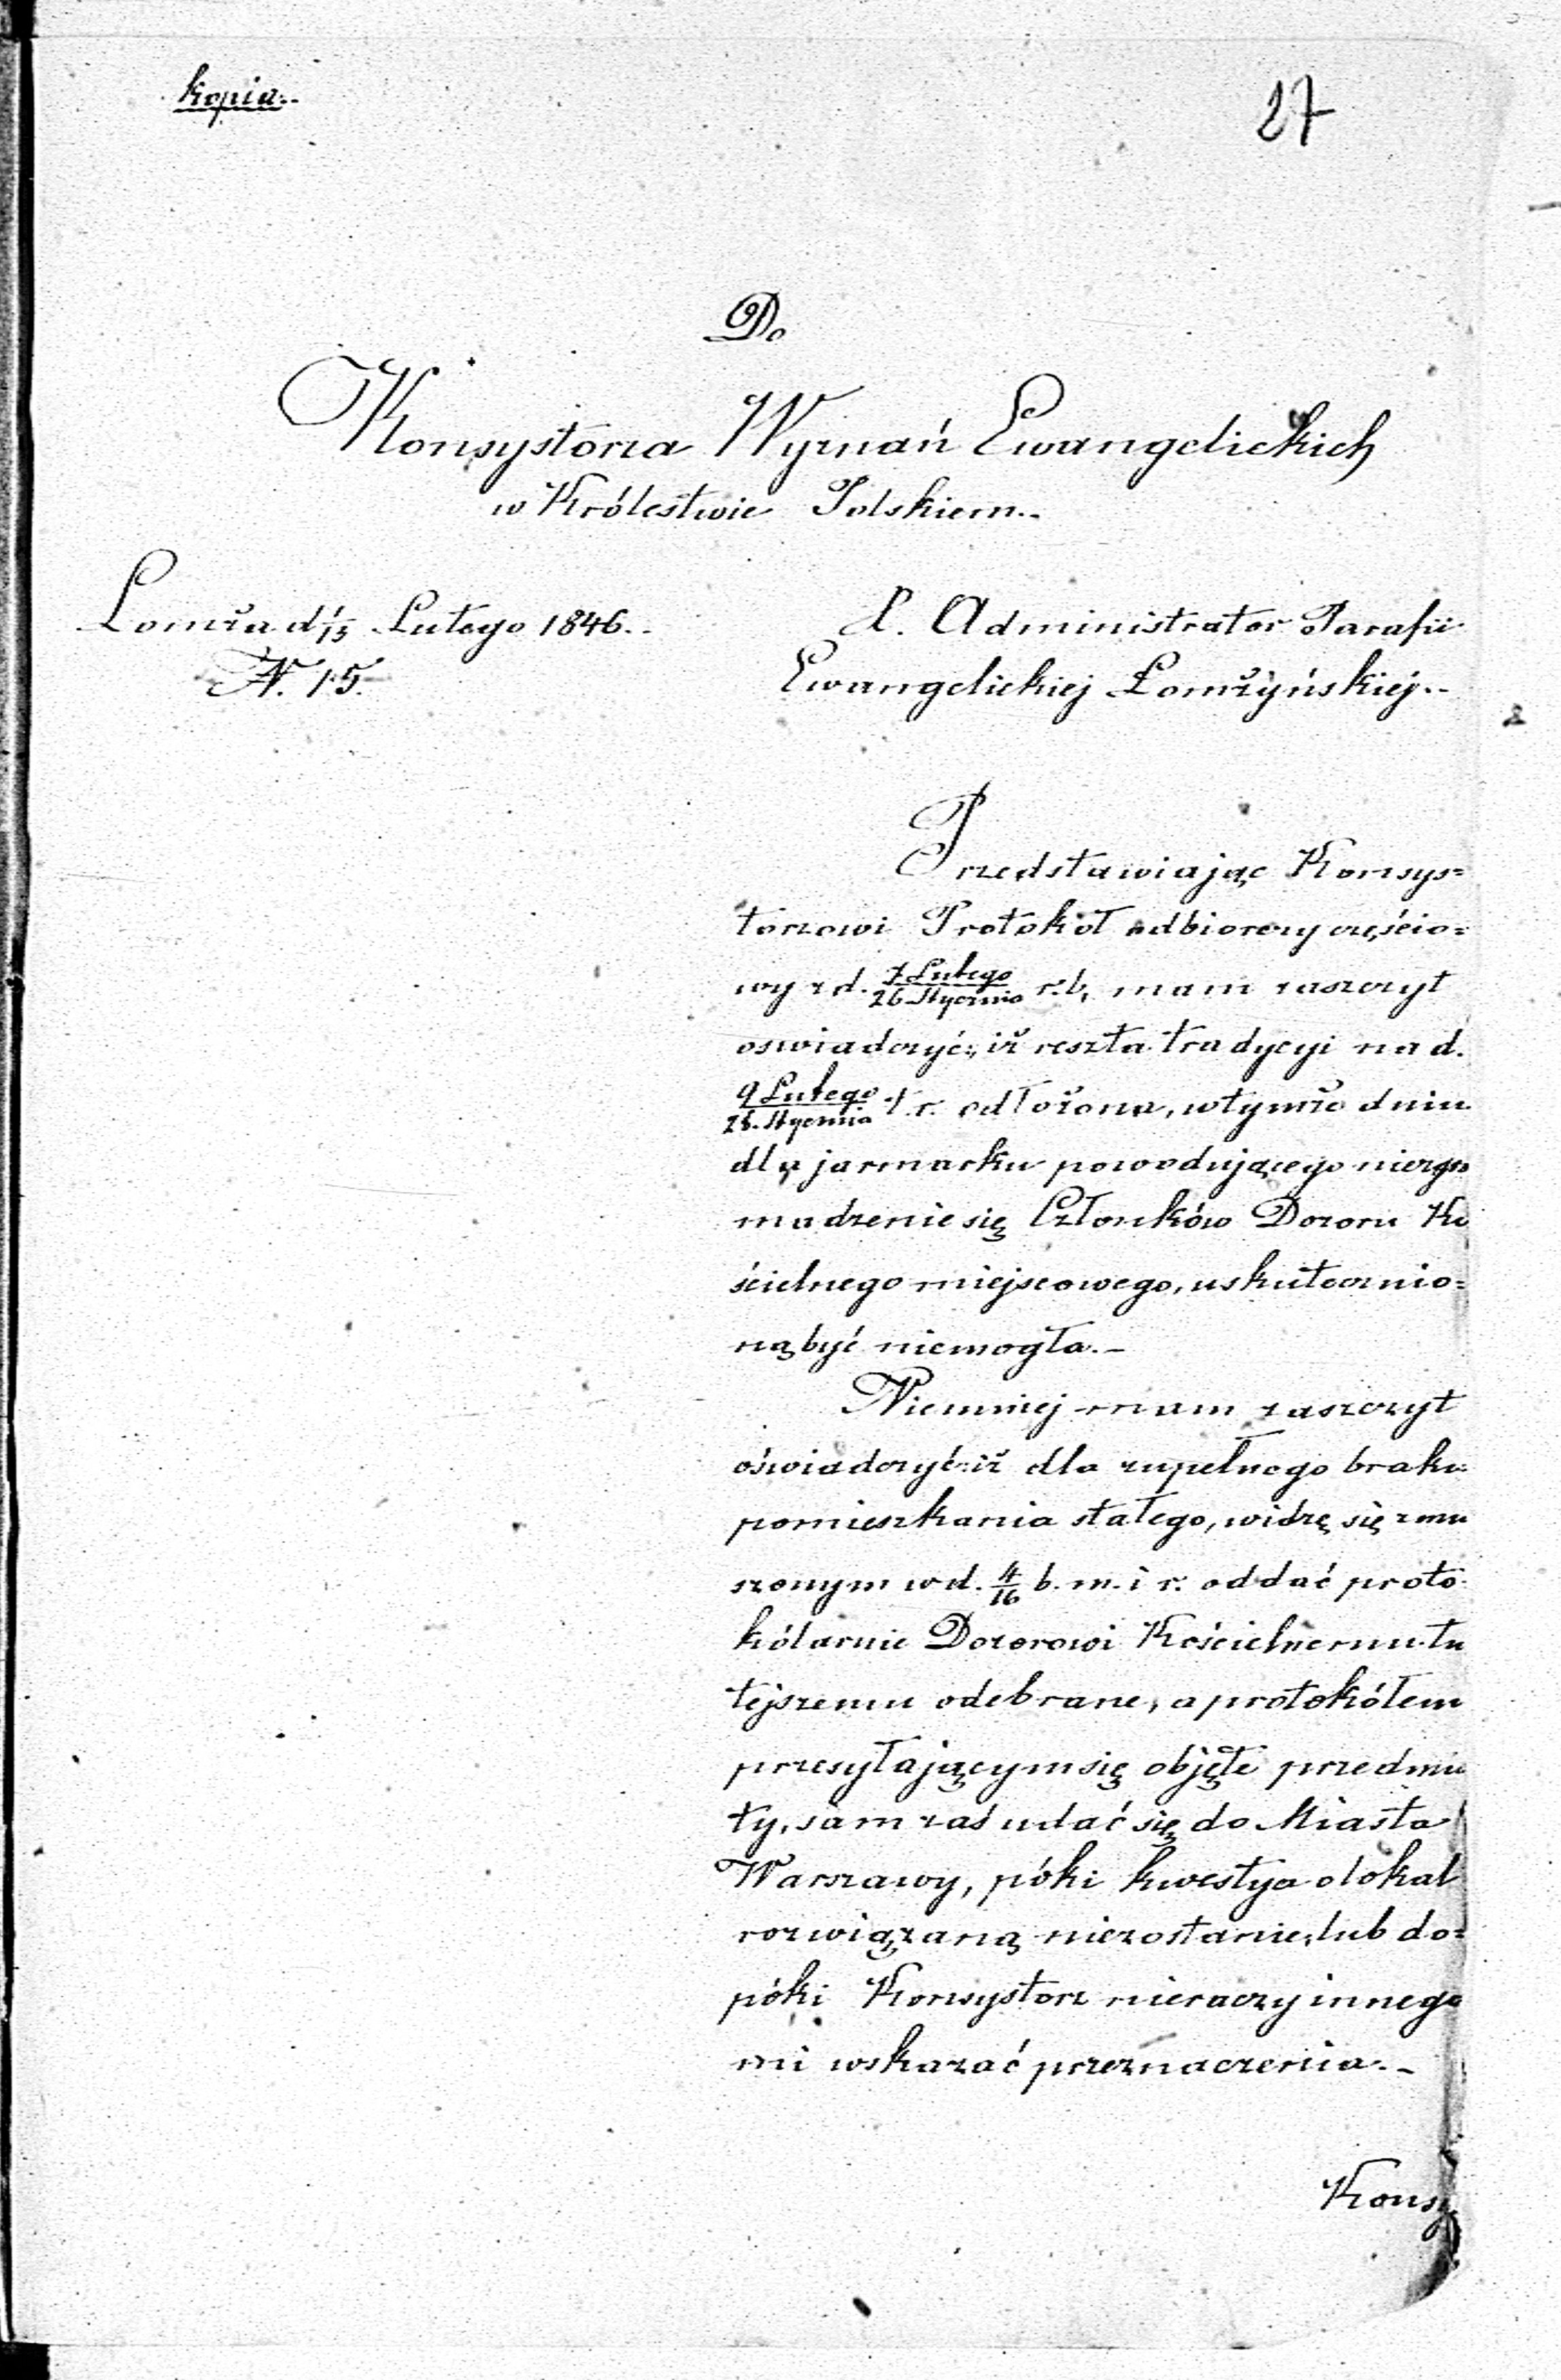 kopia.-
27
Do
Konsystorza Wyznań Ewangelickich
w Królestwie Polskiem.-
Łomża d 1/13 Lutego 1846.-
N. 15.
X. Administrator Parafii
Ewangelickiej Łomżyńskiej.-
Przedstawiając Konsys=
torzowi Protokół odbiorczy częścio=
wy z d. 7 Lutego/26 Stycznia r.b, mam zaszczyt
oswiadczyć, iż reszta tradycyi na d.
9 Lutego/28. Stycznia t.r. odłożona, w tymże dniu
dla jarmarku powodującego niezgro
madzenie się Członków Dozoru Ko
ścielnego miejscowego, uskutecznio=
ną być niemogła.-
Niemniej mam zaszczyt
oświadczyć: iż dla zupełnego braku
pomieszkania stałego, widzę się zmu
szonym w d. 4/16 b. m. i r. oddać proto
kólarnie Dozorowi Kościelnemu tu
tejszemu odebrane, a protokółem
przesyłającym się objęte przedmio
ty, sam zaś udać się do Miasta
Warszawy, póki kwestya o lokal
rozwiązaną niezostanie, lub do=
póki Konsystorz nieraczy innego
mi wskazać przeznaczenia.-
Konsy